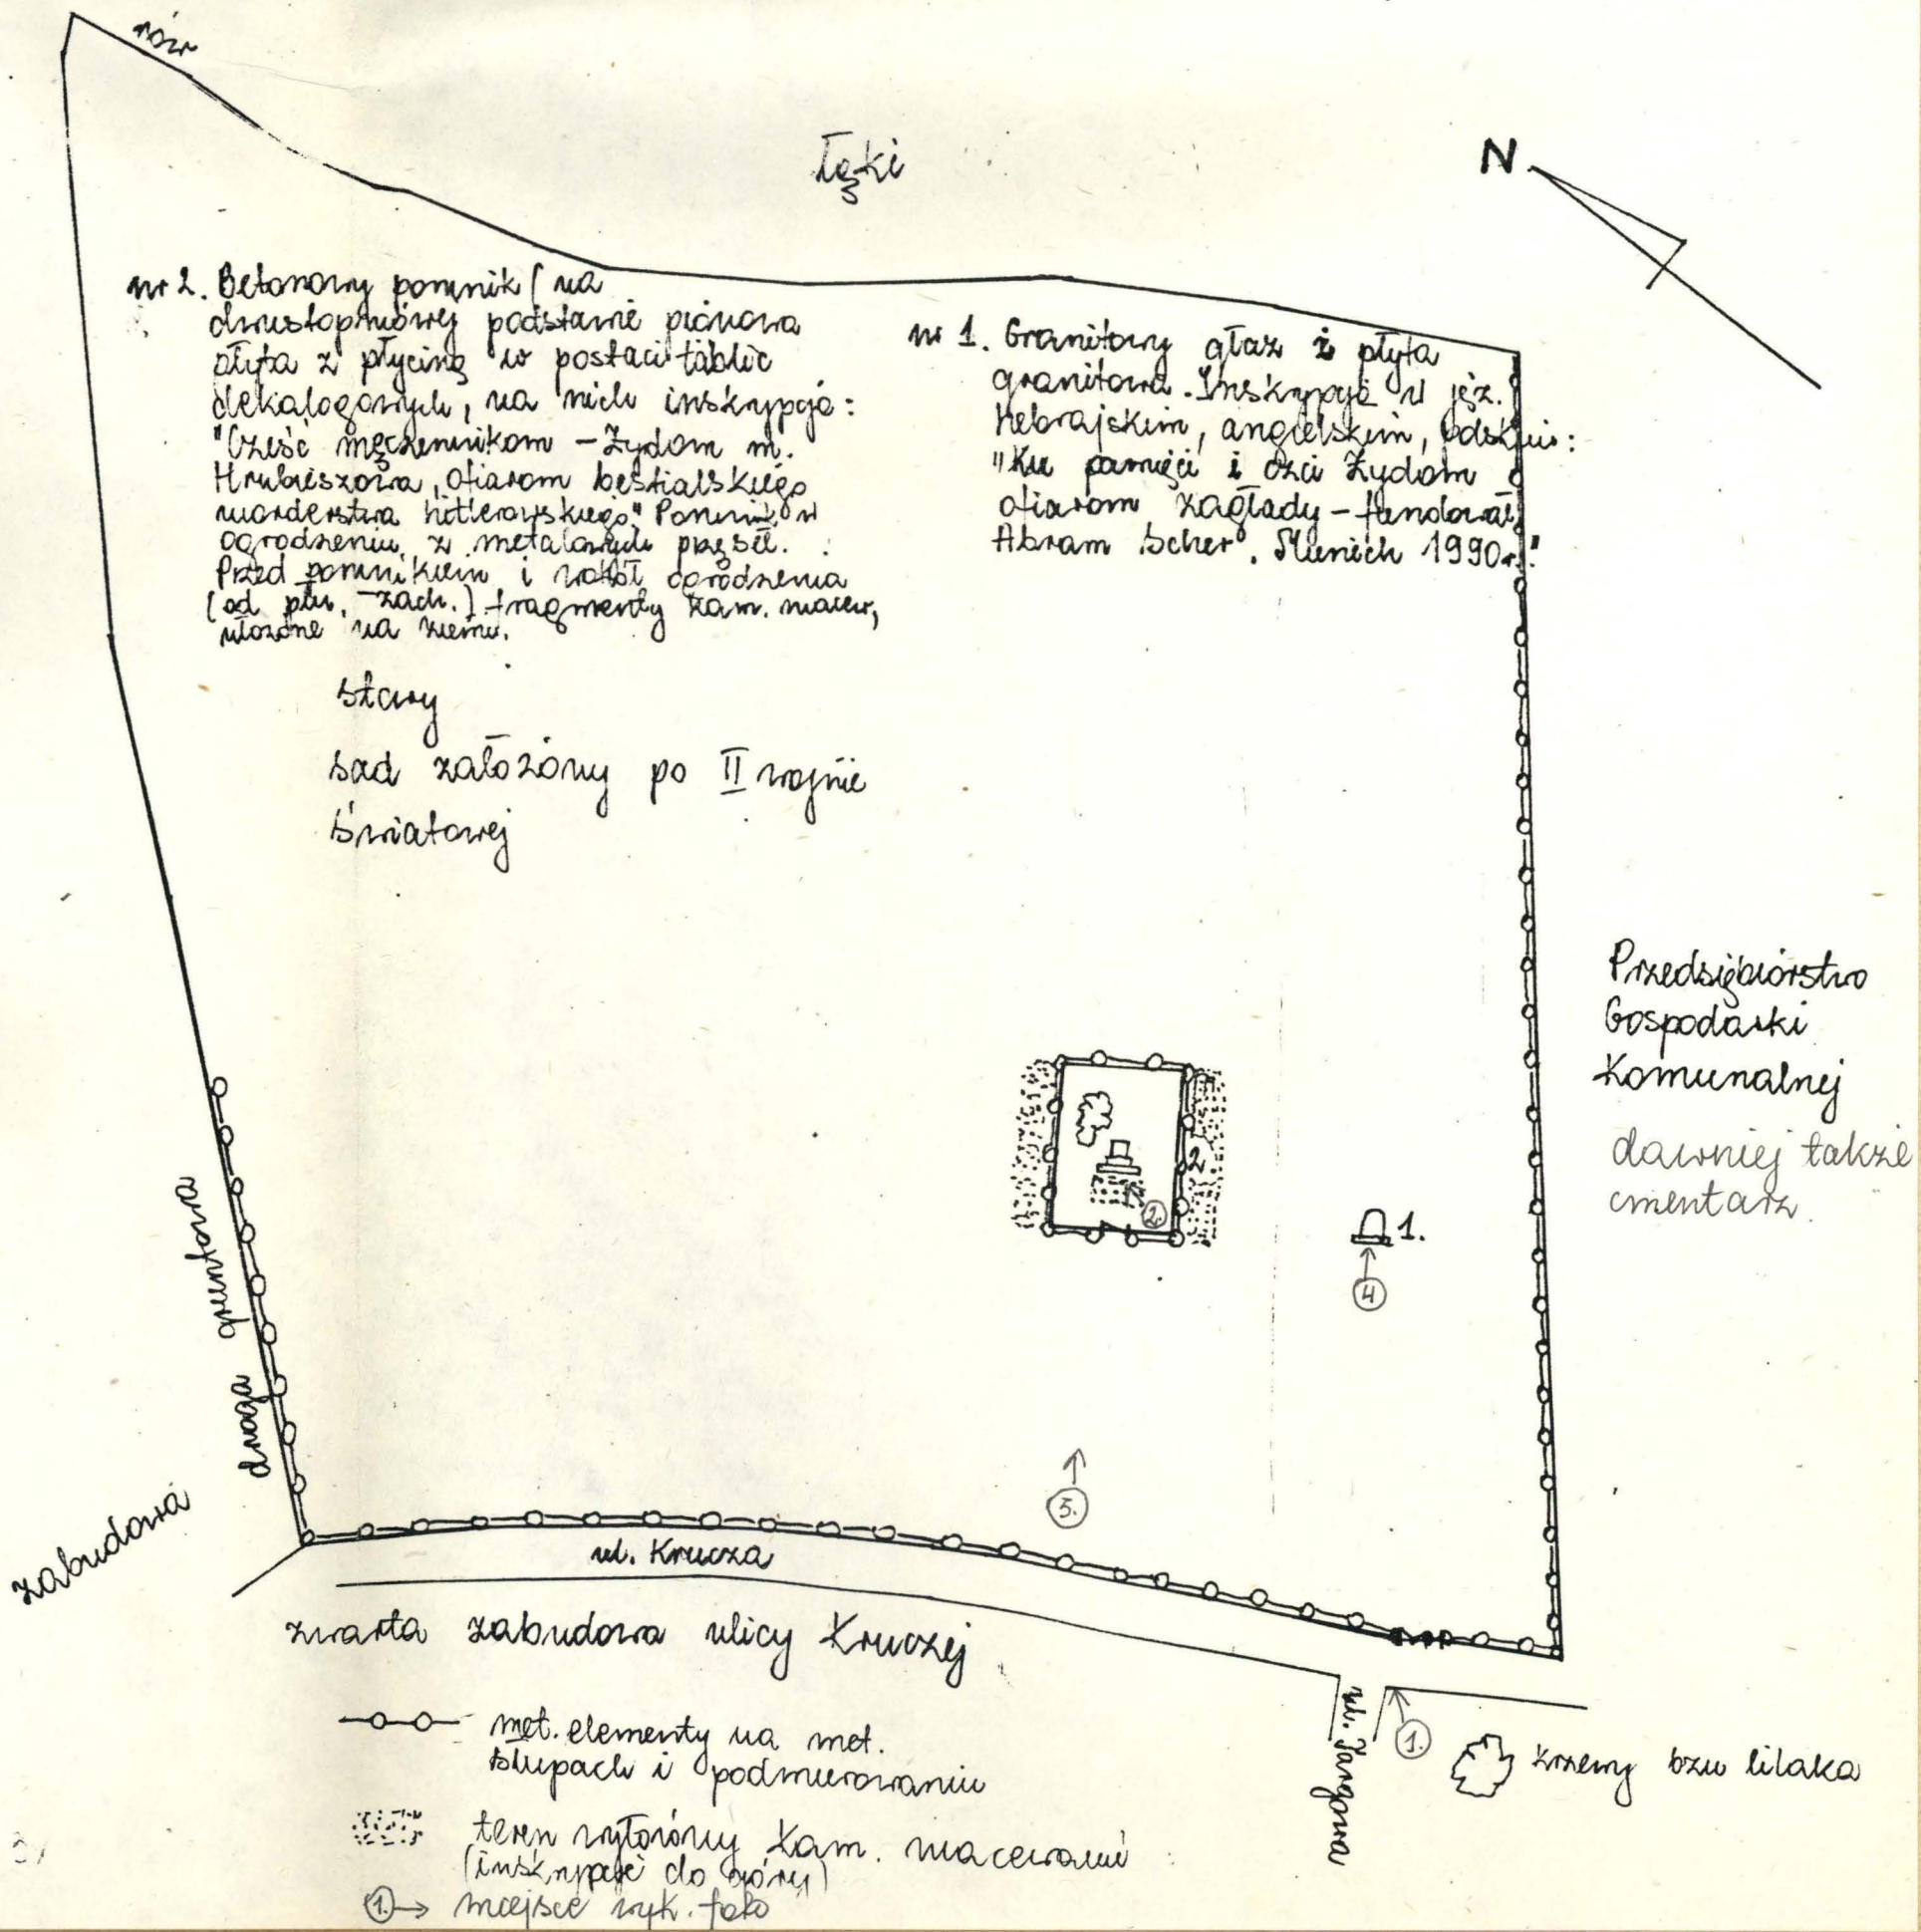 rów
łąki
N
nr 2. Betonowy pomnik (na
dwustopniowej podstawie pionowa
płyta z płyciną w postaci tablic
dekalogowych, na nich inskrypcja:
"Cześć męczennikom – Żydom m.
Hrubieszowa, ofiarom bestialskiego
morderstwa hitlerowskiego" Pomnik w
ogrodzeniu z metalowych przęseł.
Przed pomnikiem i wokół ogrodzenia
(od płn. – zach.) fragmenty kam. macew,
ułożone na ziemi.
nr 1. Granitowy głaz i płyta
granitowa. Inskrypcja w jęz.
hebrajskim, angielskim, polskim:
"Ku pamięci i czci Żydom
ofiarom zagłady – fundował
Abram Scher". Munich 1990r."
stary
sad założony po II wojnie
światowej
Przedsiębiorstwo
Gospodarki
Komunalnej
dawniej także
cmentarz
2
2.
1.
4
3.
droga gruntowa
zabudowa
ul. Krucza
zwarta zabudowa ulicy Kruczej
ul. Targowa
1.
krzewy bzu lilaka
met. elementy na met.
słupach i podmurowaniu
teren wyłożony kam. macewami
(inskrypcje do góry)
1. → miejsce wyk. foto